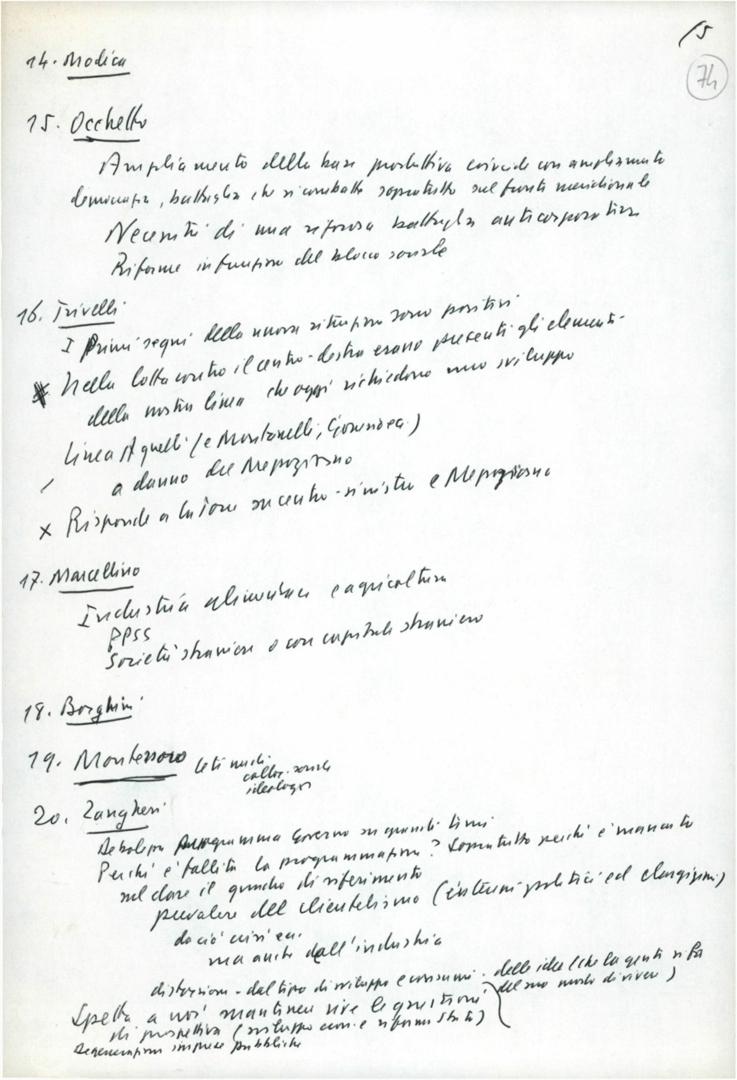 15
74
14. Modica
15. Occhetto
Ampliamento della base produttiva coincide con ampliamento
democrazia, battaglia che si combatte sopratutto sul fronte meridionale
Necessità di una rigorosa battaglia anticorporativa
Riforme in funzione del blocco sociale
16. Trivelli
I primi segni della nuova situazione sono positivi
Nella lotta contro il centro-destra erano presenti gli elementi
della nostra linea che oggi richiedono uno sviluppo
Linea Agnelli (e Montanelli, )
/ a danno del Mezzogiorno
x Risponde a La Torre su centro-sinistra e Mezzogiorno
17. Marcellino
Industria alimentare e agricoltura
PPSS
Società straniere o con capitale straniero
18. Borghini
19. Montessoro ceti medi
colloc. sociale
ideologia
20. Zangheri
Debolezza programma Governo su questi temi
Perché è fallita la programmazione? Sopratutto perché è mancato
nel dare il quadro di riferimento
prevalere del clientelismo (interessi politici ed )
da ciò crisi ec.
ma anche dell'industria
distorsione - dal tipo di sviluppo e consumi - delle idee (che la gente si fa
del suo modo di vivere)
Spetta a noi mantenere vive le questioni
di prospettiva (sviluppo econ. e riforma Stato)
Degenerazioni imprese pubbliche